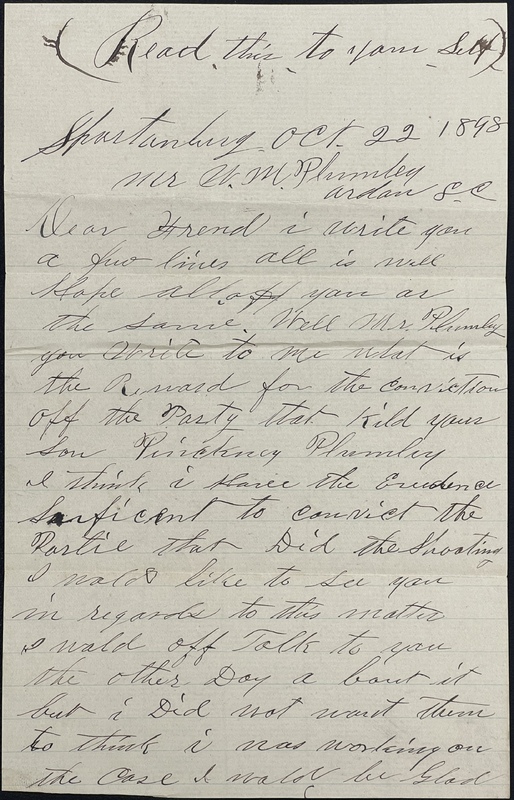 (Read this to your Self)
Spartanburg Oct. 22 1898
Mr W. M. Plumley
ardan S. C
Dear Frend i write you
a few lines all is well
Hope all off you ar
the same. Well Mr. Plumley
you Write to me what is
the Reward for the conviction
off the Party that Kild your
Son Pinckney Plumley
I think i Have the Evedence
Surficent to convict the
Partie that Did the Shooting
I wald like to see you
in regards to this matter
I wald off Talk to you
the other Day a bout it
but i Did not want them
to think i was working on
the Case I wald be Glad